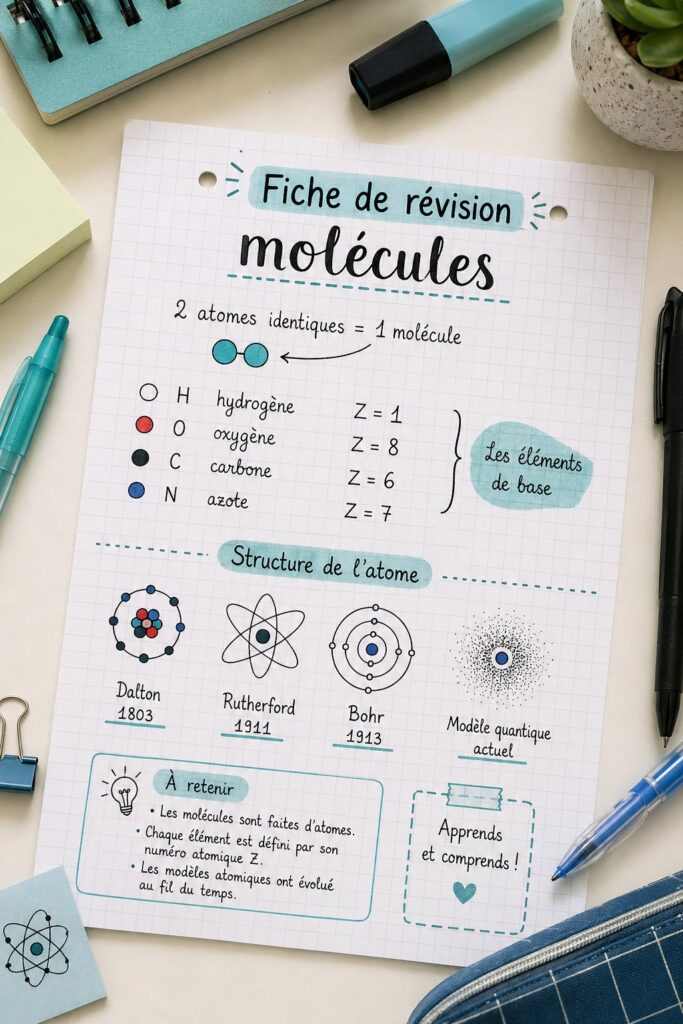 Fiche de révision
molécules
2 atomes identiques = 1 molécule
H hydrogène Z = 1
O oxygène Z = 8
C carbone Z = 6
N azote Z = 7
Les éléments
de base
Structure de l'atome
Dalton
1803
Rutherford
1911
Bohr
1913
Modèle quantique
actuel
À retenir
• Les molécules sont faites d'atomes.
• Chaque élément est défini par son
numéro atomique Z.
• Les modèles atomiques ont évolué
au fil du temps.
Apprends
et comprends !